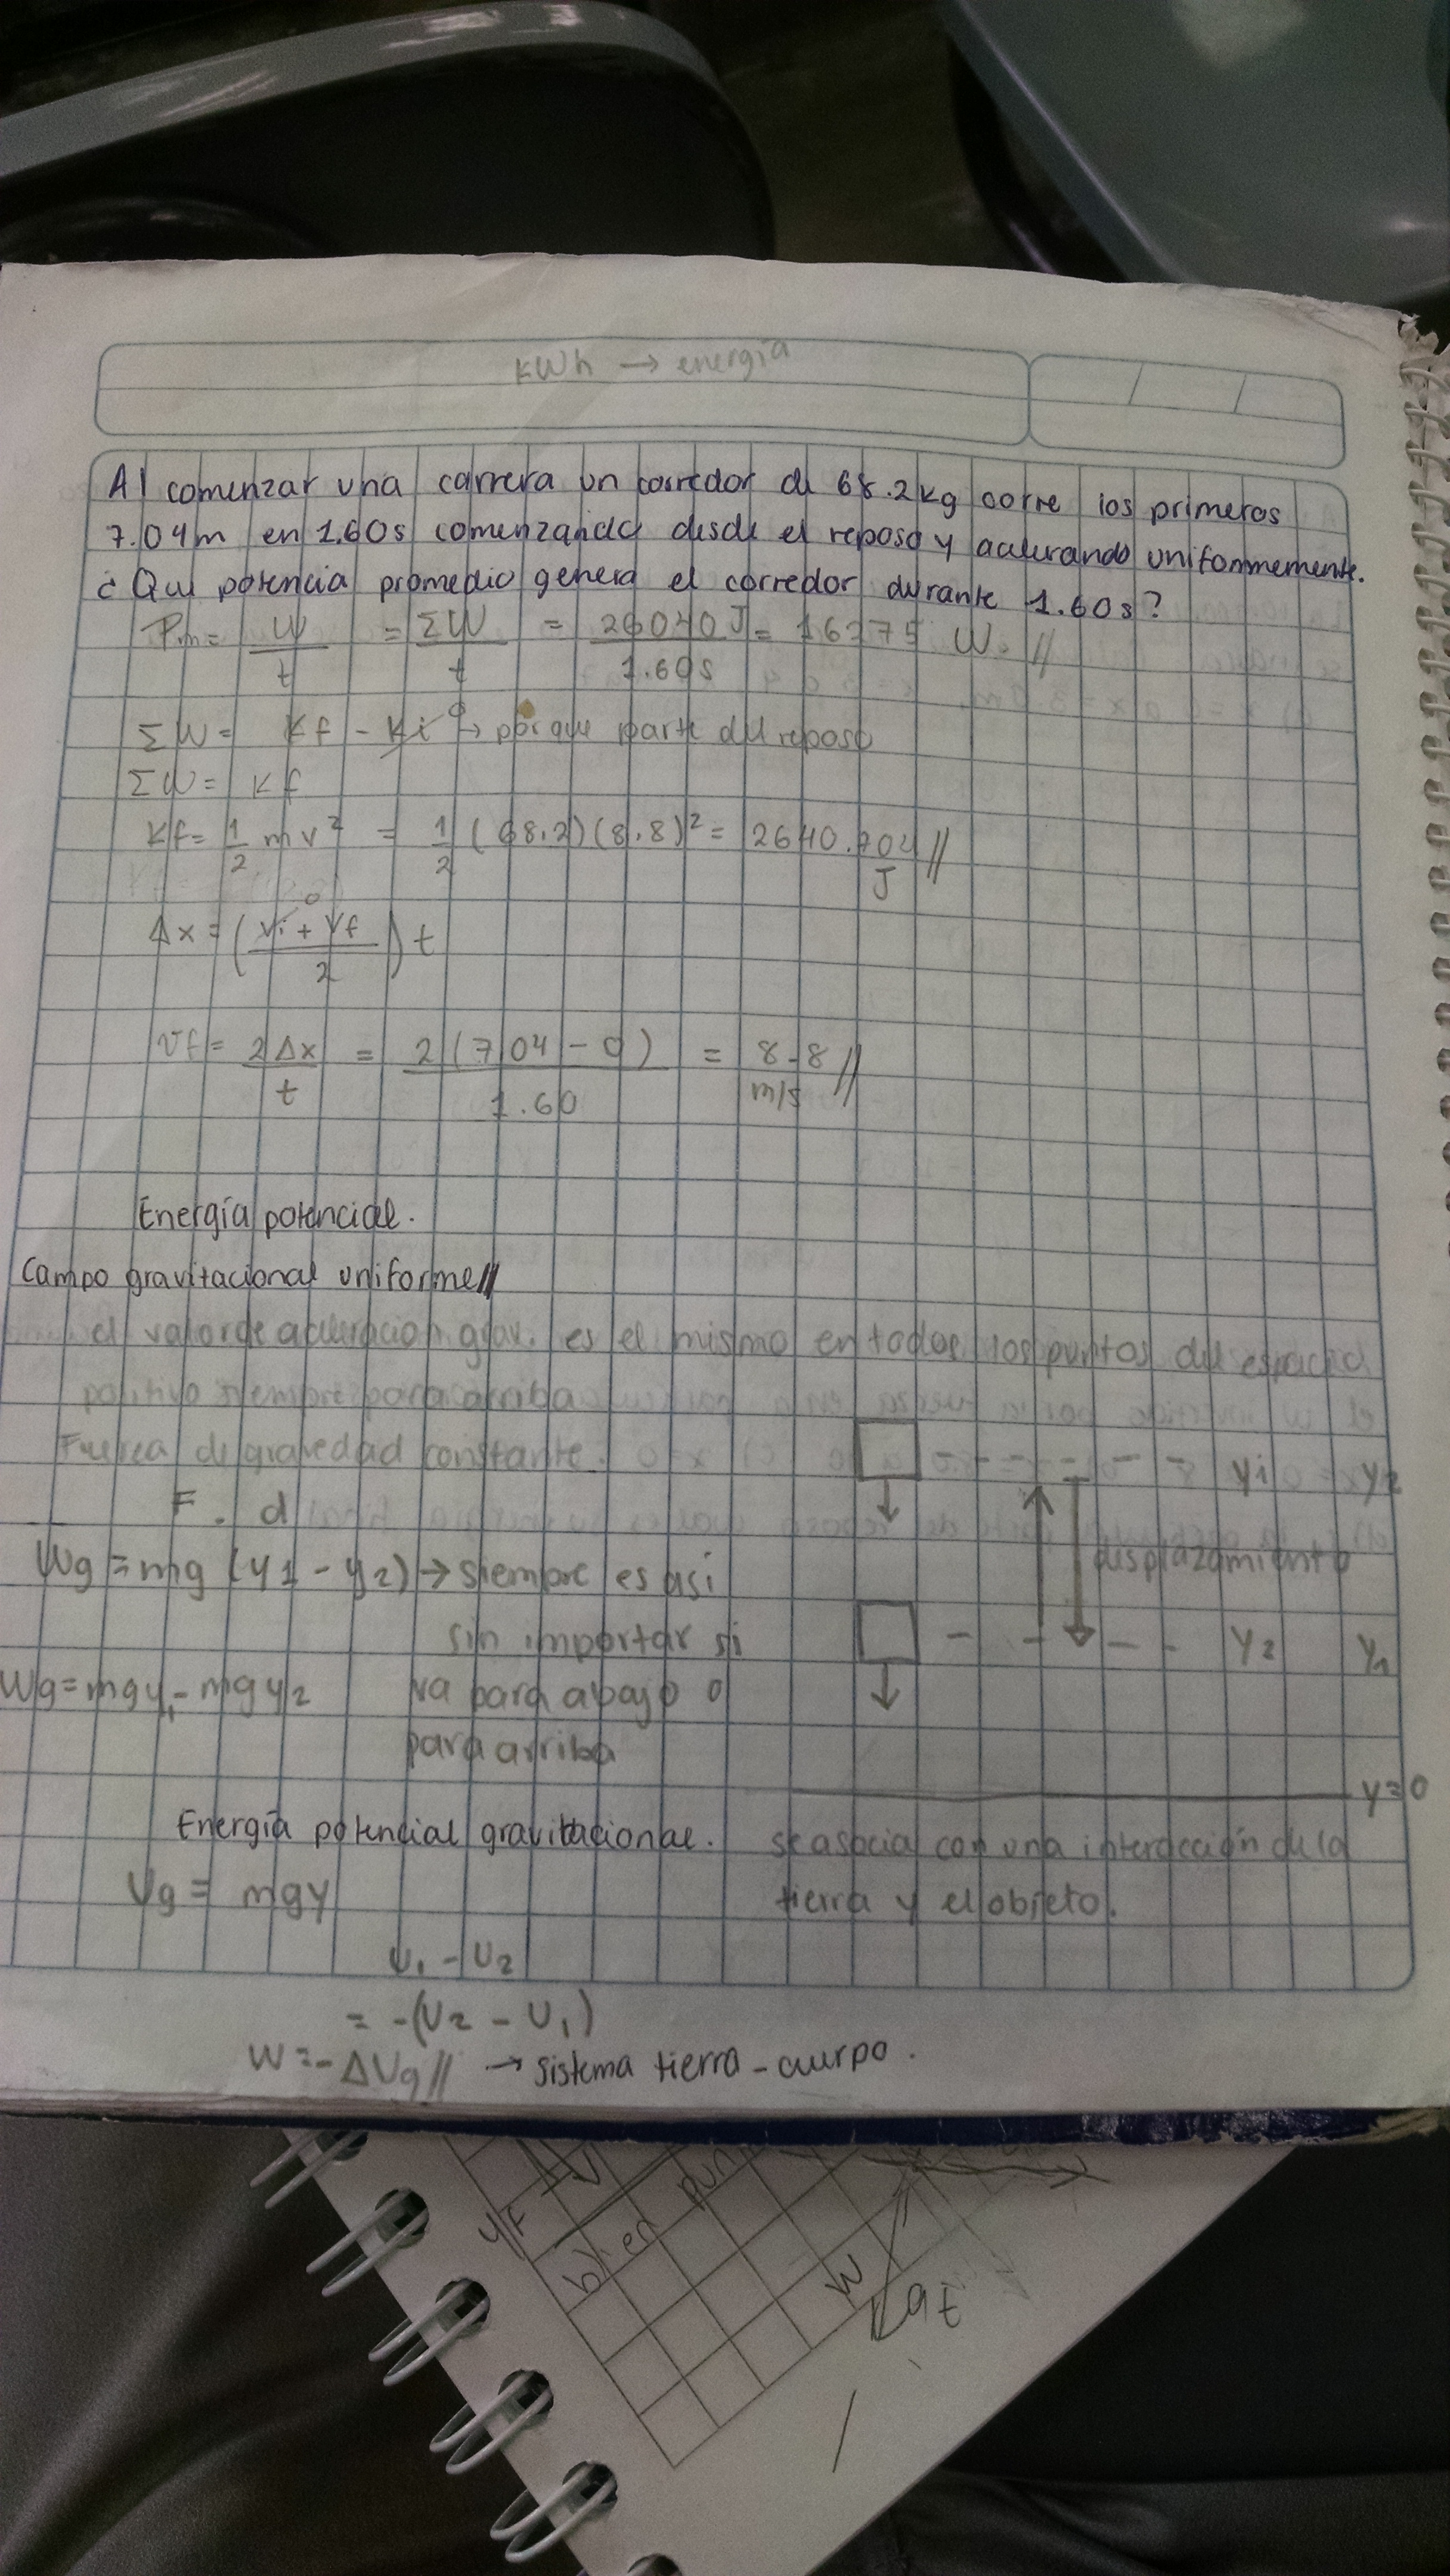 KWh → energía
Al comenzar una carrera un corredor de 68.2kg corre los primeros
7.04m en 1.60s comenzando desde el reposo y acelerando uniformemente.
¿Que potencia promedio genera el corredor durante 1.60s?
Pm = W/t = ΣW/t = 26040J/1.60s = 16275 W. //
ΣW = Kf - Ki⁰ → porque parte del reposo
ΣW = Kf
Kf = 1/2 mv² = 1/2 (68.2)(8.8)² = 2640.704 J //
Δx = ((Vi⁰ + Vf)/2) t
Vf = 2Δx/t = 2(7.04 - 0)/1.60 = 8.8 m/s //
Energía potencial.
Campo gravitacional uniforme //
el valor de aceleracion grav. es el mismo en todos los puntos del espacio
positivo siempre para arriba
Fuerza de gravedad constante.
y1 y2
F . d
displazamiento
Wg = mg (y1 - y2) → siempre es asi
sin importar si
va para abajo o
para arriba
y2 y1
Wg = mgy1 - mgy2
y=0
Energía potencial gravitacional. se asocia con una interacción de la
tierra y el objeto.
Ug = mgy
U1 - U2
= -(U2 - U1)
W = -ΔUg // → sistema tierra - cuerpo.